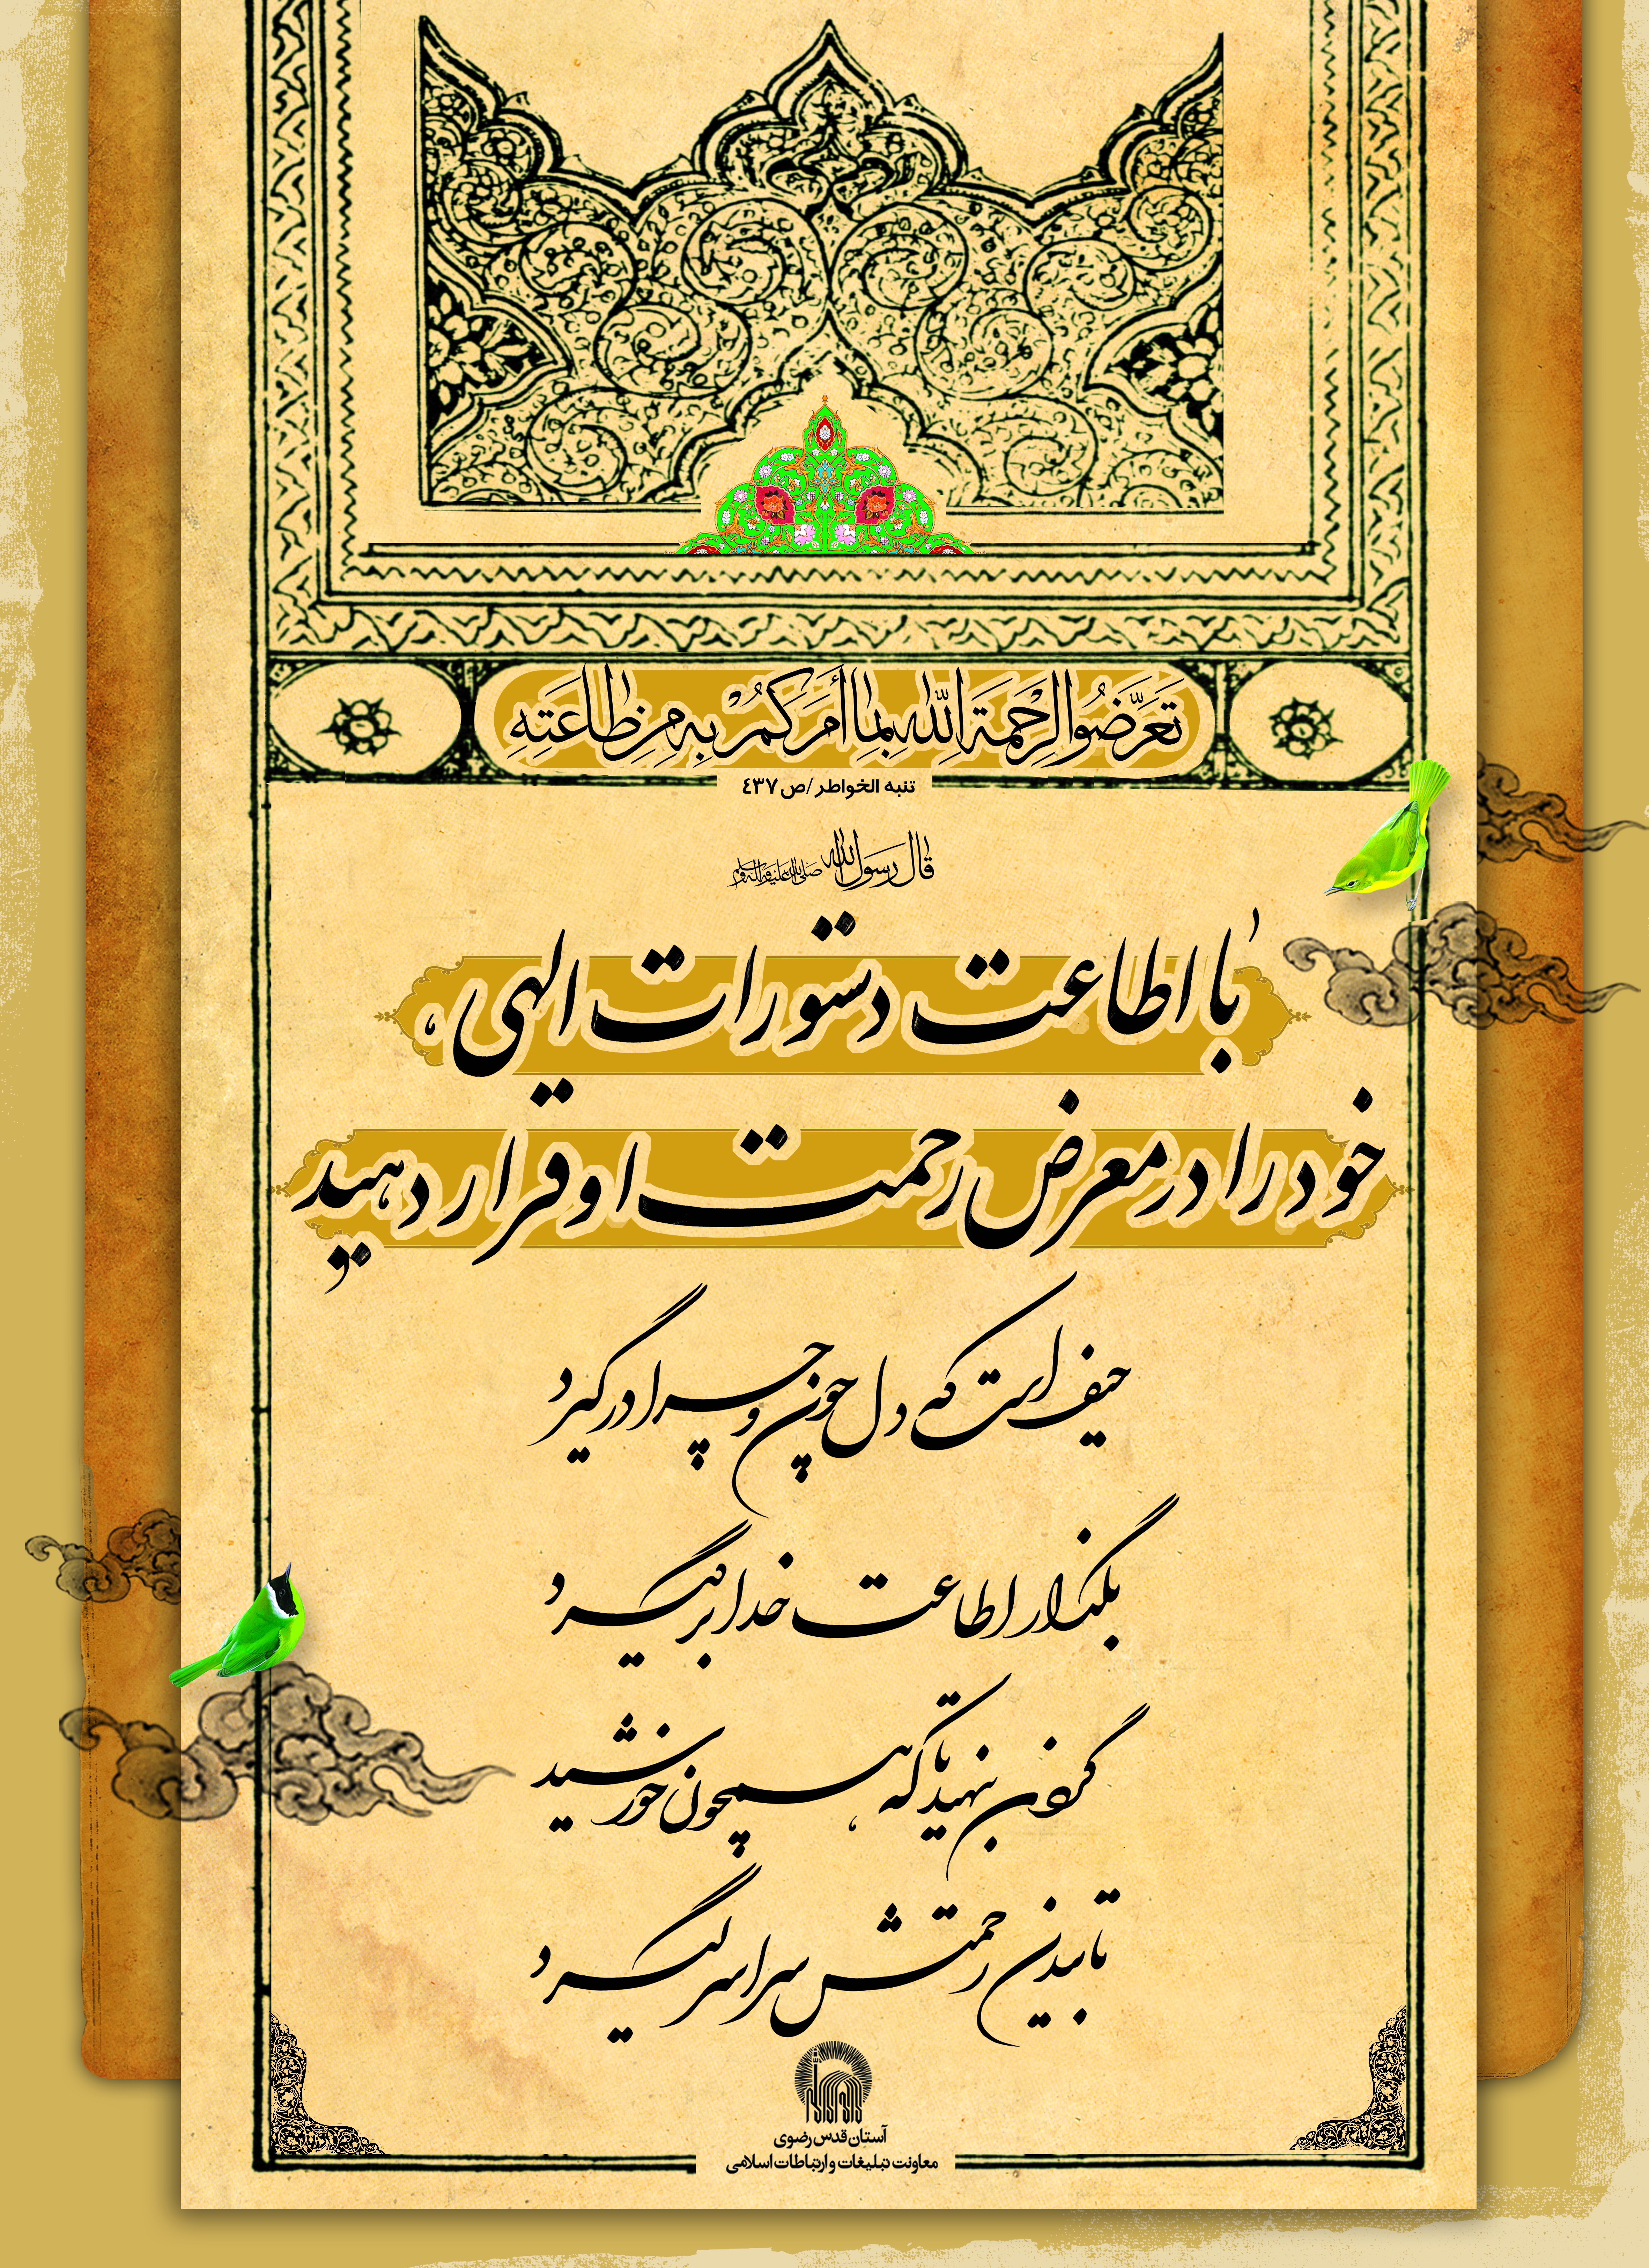 تَعَرَّضُوا لِرَحْمَةِ اللّٰهِ بِما أَمَرَكُمْ بِهِ مِنْ طاعَتِهِ
تنبه الخواطر/ص ٤٣٧
قال رسول الله صلی الله علیه و آله و سلم
با اطاعت دستورات الهی،
خود را در معرض رحمت او قرار دهید
حیف است که دل چون و چرا در گیرد
بگذار اطاعت خدا بر گیرد
گردن بنهید تا که همچون خورشید
تابیدن رحمتش سراسر گیرد
آستان قدس رضوی
معاونت تبلیغات و ارتباطات اسلامی